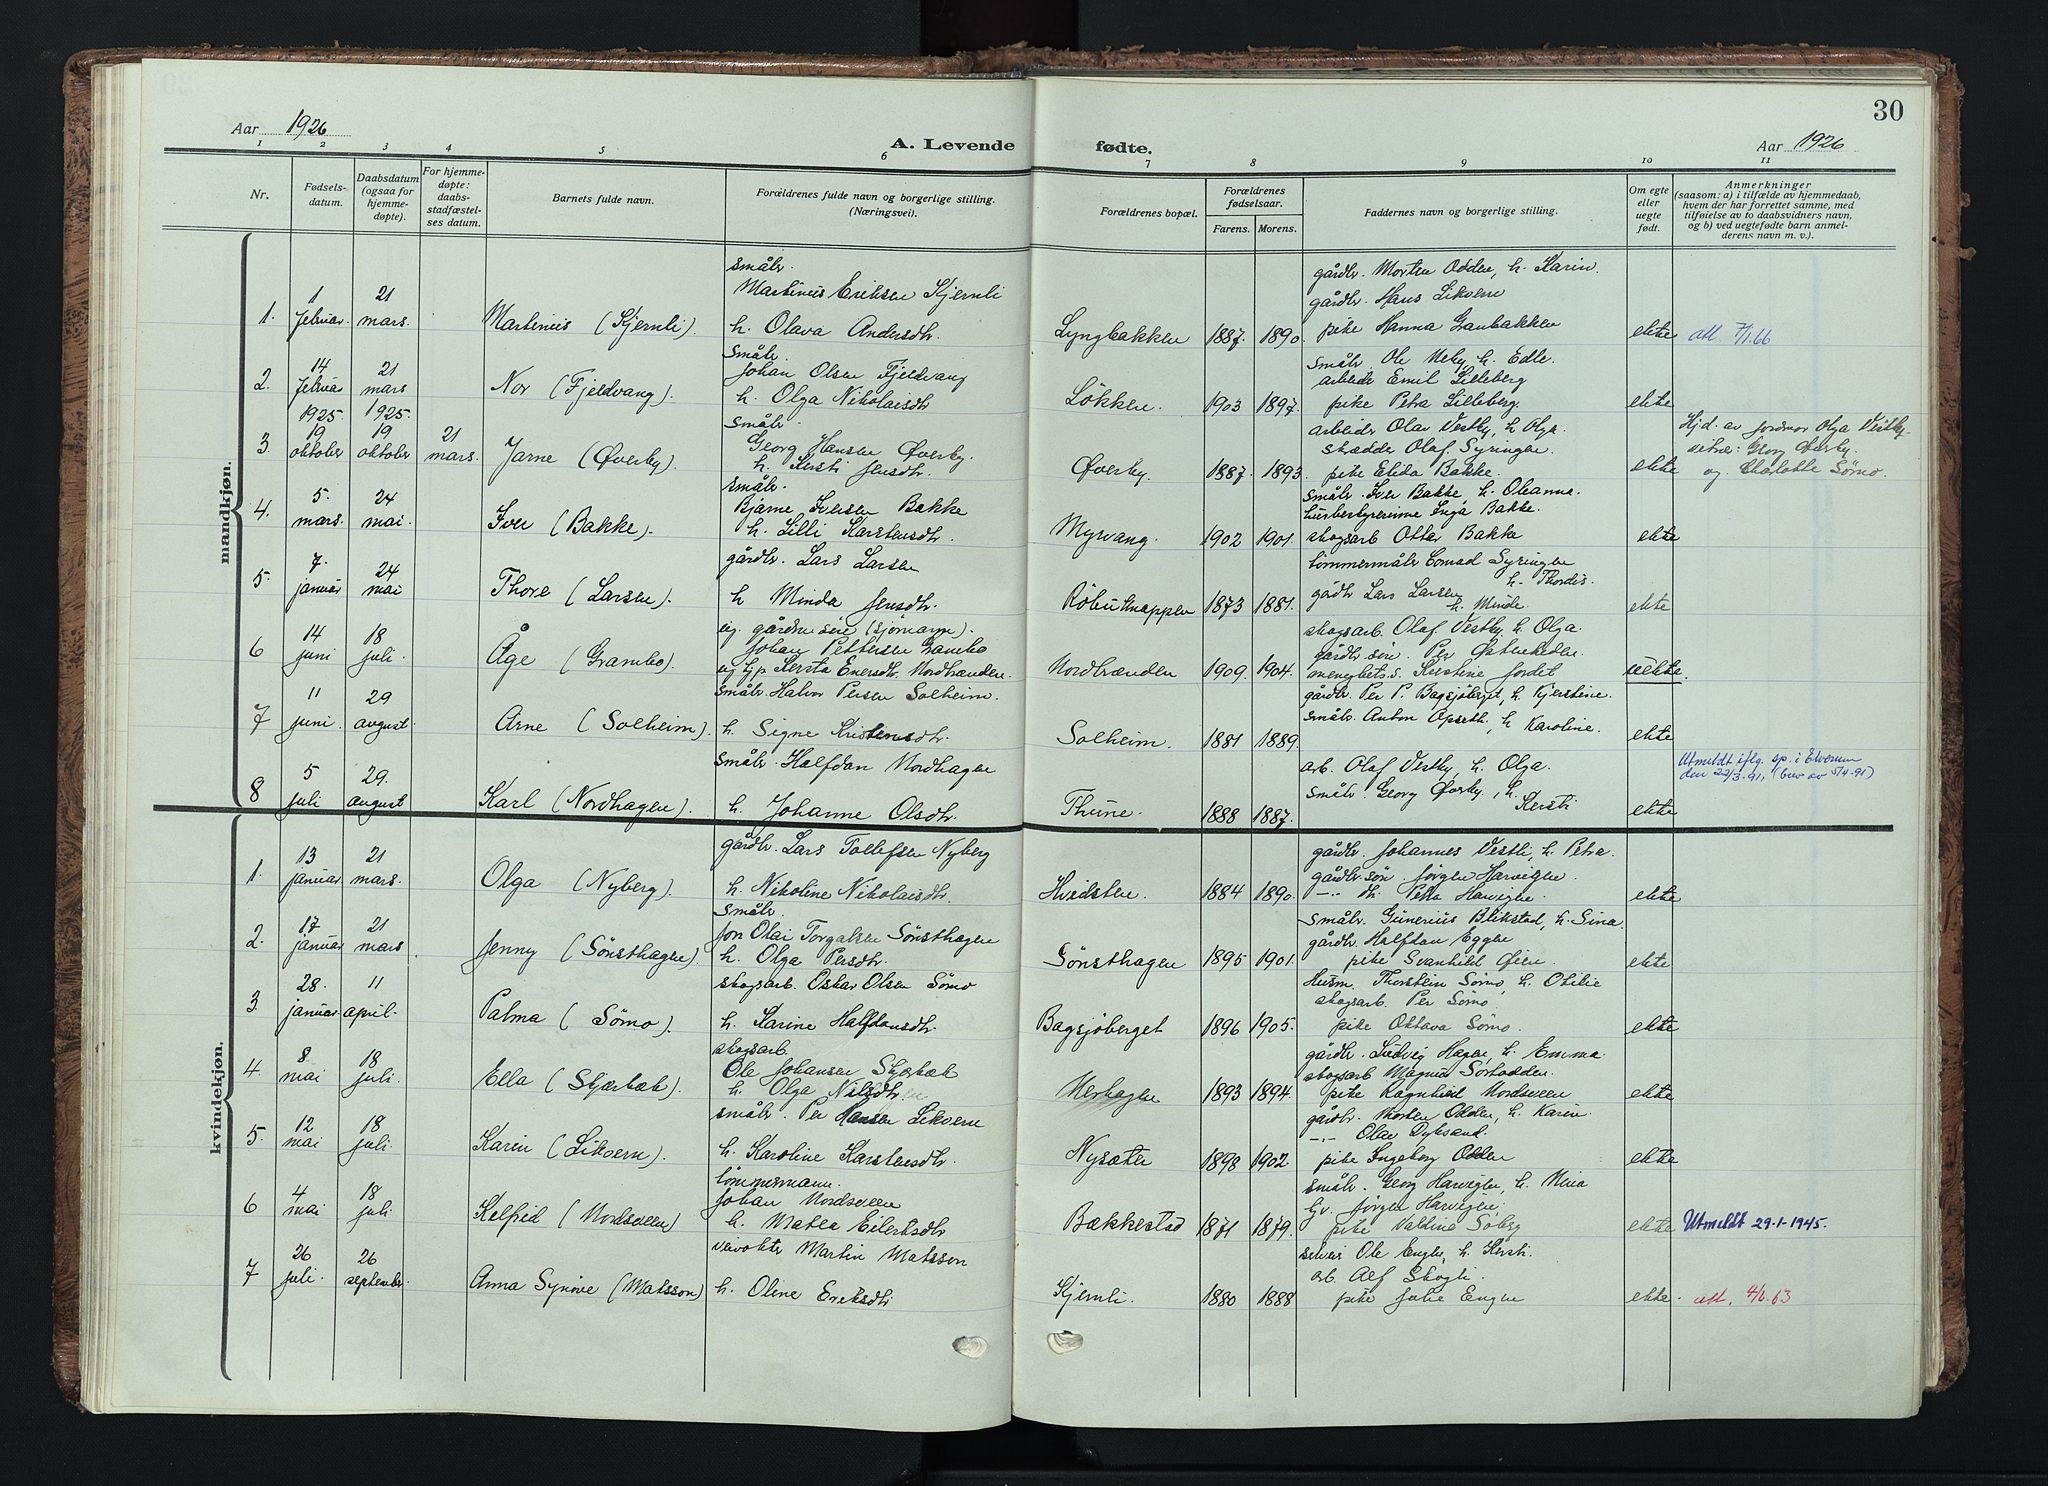 30
Aar 1926
A. Levende fødte.
Aar 1926
1 2 3 4 5 6 7 8 9 10 11
Nr.
Fødsels-
datum.
Daabsdatum
(ogsaa for
hjemme-
døpte).
For hjemme-
døpte:
daabs-
stadfæstel-
ses datum.
Barnets fulde navn.
Forældrenes fulde navn og borgerlige stilling.
(Næringsvei).
Forældrenes bopæl.
Forældrenes
fødselsaar.
Farens. Morens.
Faddernes navn og borgerlige stilling.
Om egte
eller
uegte
født.
Anmerkninger
(saasom: a) i tilfælde av hjemmedaab,
hvem der har forrettet samme, med
tilføielse av to daabsvidners navn,
og b) ved uegtefødte barn anmel-
derens navn m. v.).
mandkjøn.
1. 1 februar. 21 mars. Martinius (Kjernli).
småbr.
Martinius Eriksen Kjernli
h. Olava Andersdtr.
Lyngbakken 1887. 1890.
gårdbr. Morten Odden, h. Karin.
gårdbr. Hans Likvern
pike Hanna Granbakken
ekte att. 7/1.66
2. 14 februar 21 mars Nor (Fjeldvang).
småbr.
Johan Olsen Fjeldvang
h. Olga Nikolaisdtr
Løkken. 1903 1897.
småbr. Ole Meby h. Edle.
arbeider Emil Lilleberg
pike Petra Lilleberg.
ekte
3. 1925. 19 oktober 1925. 19 oktober 21 mars. Jarne (Øverby).
småbr.
Georg Hansen Øverby.
h. Kersti Jensdtr.
Øverby. 1887. 1893.
arbeider Olav Vestby, h. Olga.
skrædder Olaf Syringen.
pike Elida Bakke.
ekte
Hjd. av jordmor Olga Vestby.
vitner: Georg Øverby.
og Charlotte Sørmo.
4. 5. mars. 24 mai. Iver (Bakke).
småbr.
Bjarne Iversen Bakke
h. Lilli Karstensdtr.
Myrvang. 1902 1901.
småbr. Iver Bakke, h. Oleanna.
husbestyrerinne Inga Bakke.
skogsarb Otter Bakke
ekte
5. 7. januar 24 mai Thore (Larsen).
gårdbr. Lars Larsen
h Minda Jensdtr.
1873 1881.
tømmermåler Conrad Syringen
h. Thordis.
gårdbr Lars Larsen
h. Minde.
ekte
6 14 juni 18 juli. Åge (Grambo).
ug. gårdmsøn (sjømann).
Johan Pettersen Grambo
ug tjp Kersta Enersdtr. Nordbrænden.
Nordbrænden 1909. 1904.
skogsarb. Olaf Vestby, h. Olga.
gårdbr søn. Per
menighets.s. Kirstine fordet
uekte.
7 11 juni. 29 august. Arne (Solheim).
småbr. Halvor Persen Solheim.
h. Signe Kristensdtr.
Solheim. 1881 1889.
gårdbr. Per P. Bagsjøberget, h. Kjerstine.
småbr. Anton Apseth, h Karoline.
ekte
8 5 juli 29. august Karl (Nordhagen).
småbr. Halfdan Nordhagen
h. Johanne Olsdtr.
Thune. 1888 1887.
arb. Olaf Vestby, h. Olga.
småbr. Georg Øverby, h.
Kersti
ekte
Utmeldt iflg. sp. i Elverum
den 22/3-91, (brev av 5/4-91)
kvindekjøn.
1. 13 januar 21 mars. Olga (Nyberg).
gårdbr. Lars Tollefsen Nyberg
h. Nikoline Nikolaisdtr.
Hvidsten. 1884 1890.
gårdbr. Johannes Vestli, h. Petra.
gårdbr. søn. Jørgen Harvigen.
-"- dtr. Petra Harvigen.
ekte
2. 17 januar 21 mars Jenny (Sønsthagen).
småbr.
Jon Olai Torgalsen Sønsthagen
h. Olga Persdtr.
Sønsthagen 1895 1901.
småbr. Gunerius Blikstad, h. Sina.
gårdbr. Halfdan Eggen
pike Svanhild Øien.
ekte
3 28. januar. 11 april. Palma (Sørmo).
skogsarb. Oskar Olsen Sørmo
h. Karine Halfdansdtr.
Bagsjøberget 1896 1905.
Husm. Thorstein Sørmo, h. Otilie
skogsarb. Per Sørmo
pike Oktava Sørmo.
ekte
4 8 mai 18 juli. Ella (Skjærbæk).
skogsarb.
Ole Johansen Skjærbæk
h. Olga Nilsdtr.
Merhagen 1893 1894.
gårdbr. Ludvig Hagen, h. Emma.
skogsarb Magnus Sorhodden.
pike Ragnhild Nordsveen
ekte
5. 12 mai 18 juli Karin (Likvern).
småbr. Per Hansen Likvern
h. Karoline Karstensdtr.
Nysæter 1898 1902.
gårdbr. Morten Odden, h. Karin.
-"- Olav Dyksand.
pike Ingeborg Odden
ekte
6 4 mai 18 juli Kelfrid (Nordsveen)
tømmermann.
Johan Nordsveen
h. Matea Eilertsdtr
Bækkestad 1871 1879.
småbr. Georg Harvigen, h. Nina
tjv. Jørgen Harvigen,
pike Valdine Søberg
ekte Utmeldt 29-1-1945.
7 26 juli. 26 september. Anna Synøve (Matsson)
veivokter Martin Matsson
h. Oline Eriksdtr
Kjernli. 1880 1888
selveier Ole Engen, h. Kersti.
arb. Alf Skogli.
pike Julie Engen
ekte. att. 4/6.63